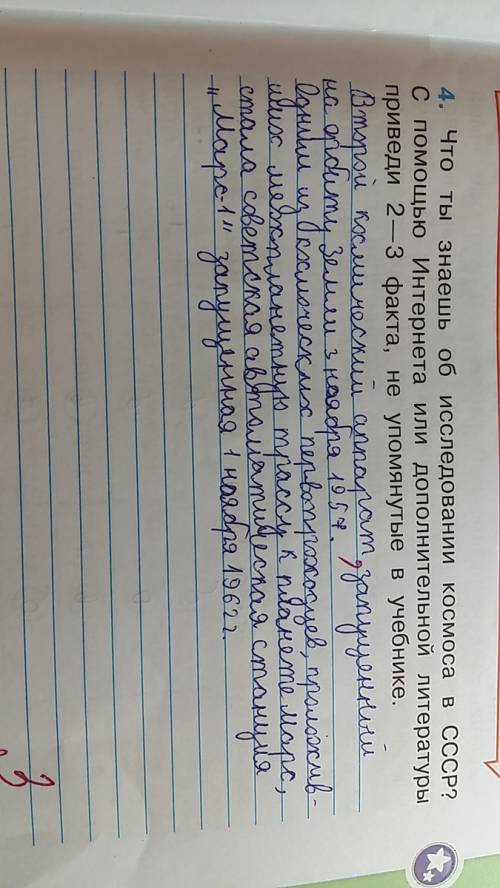 4. Что ты знаешь об исследовании космоса в СССР?
С помощью Интернета или дополнительной литературы
приведи 2—3 факта, не упомянутые в учебнике.
Второй космический аппарат, запущенный
на орбиту Земли 3 ноября 1957.
Одним из космических первопроходцев, проложив-
ших межпланетную трассу к планете Марс,
стала советская автоматическая станция
„Марс-1" запущенная 1 ноября 1962 г.
3